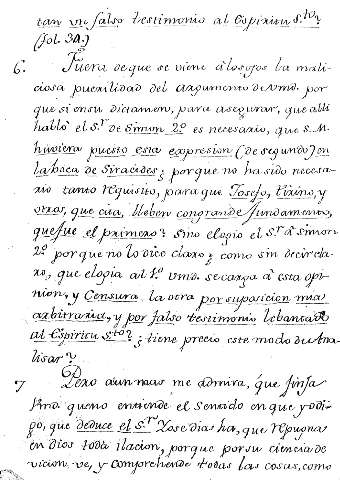 tan un falso testimonio al Espiritu S.to?
(fol. 34.)
6. Fuera de que se viene á los ojos la mali-
ciosa puerilidad del argumento de Vmd. por
que si en su dictamen, para asegurar, que alli
habló el S.r de Simon 2.º es necesario, que S. M.
huviera puesto esta expresion (de segundo) en
la boca de Siracides; porque no ha sido necesa-
rio tanto requisito, para que Josefo, Tirino, y
otros, que cita, lleben con grande fundamento,
que fue el primero? Si no elogió el S.r á Simon
2.º porque no lo dice claro; como sin decir cla-
ro, que elogia al 1.º Vmd. se carga á esta opi-
nion, y Censura la otra por suposicion mia
arbitraria, y por falso testimonio lebantado
al Espiritu S.to? ¿tiene precio este modo de Ana-
lisar?
7 Pero aun mas me admira, que finja
Vmd que no entiende el Sentido en que yo di-
go, que deduce el S.r Dose dias ha, que repugna
en dios toda ilacion, porque por su ciencia de
vicion, ve, y comprehende todas las cosas, como